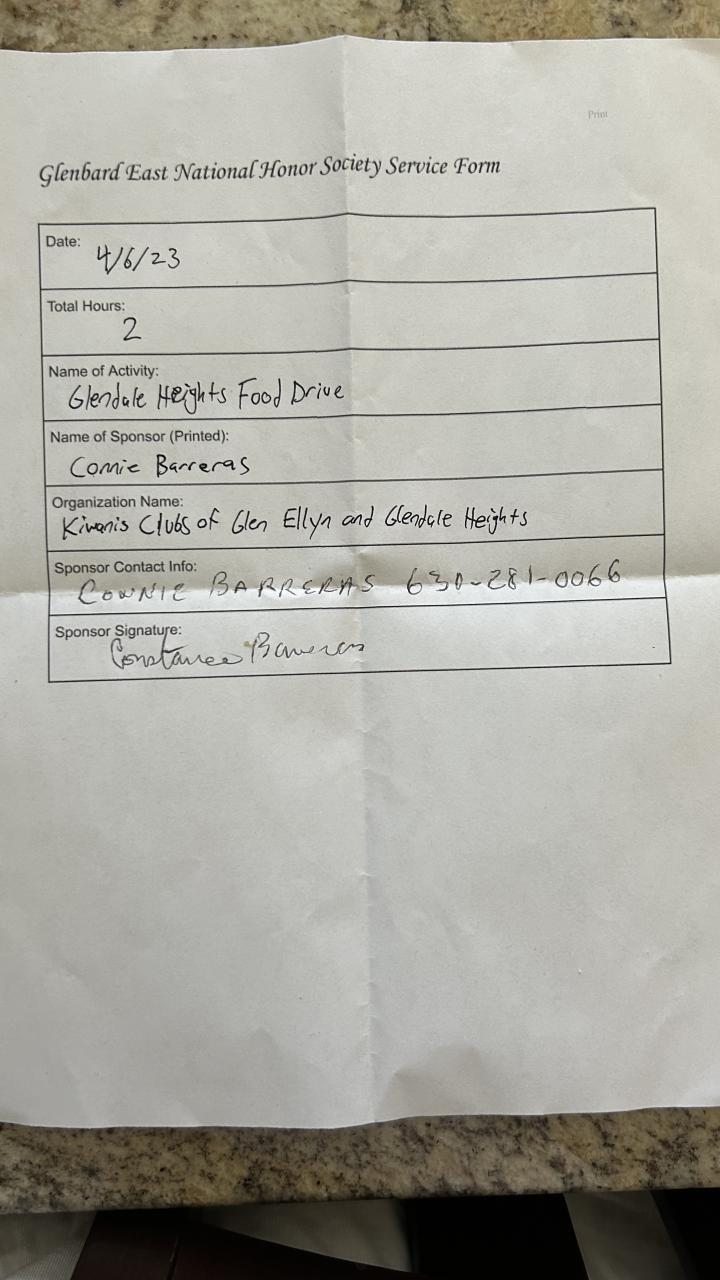 Print
Glenbard East National Honor Society Service Form
Date:
4/6/23
Total Hours:
2
Name of Activity:
Glendale Heights Food Drive
Name of Sponsor (Printed):
Connie Barreras
Organization Name:
Kiwanis Clubs of Glen Ellyn and Glendale Heights
Sponsor Contact Info:
CONNIE BARRERAS 630-281-0066
Sponsor Signature:
Constance Barreras